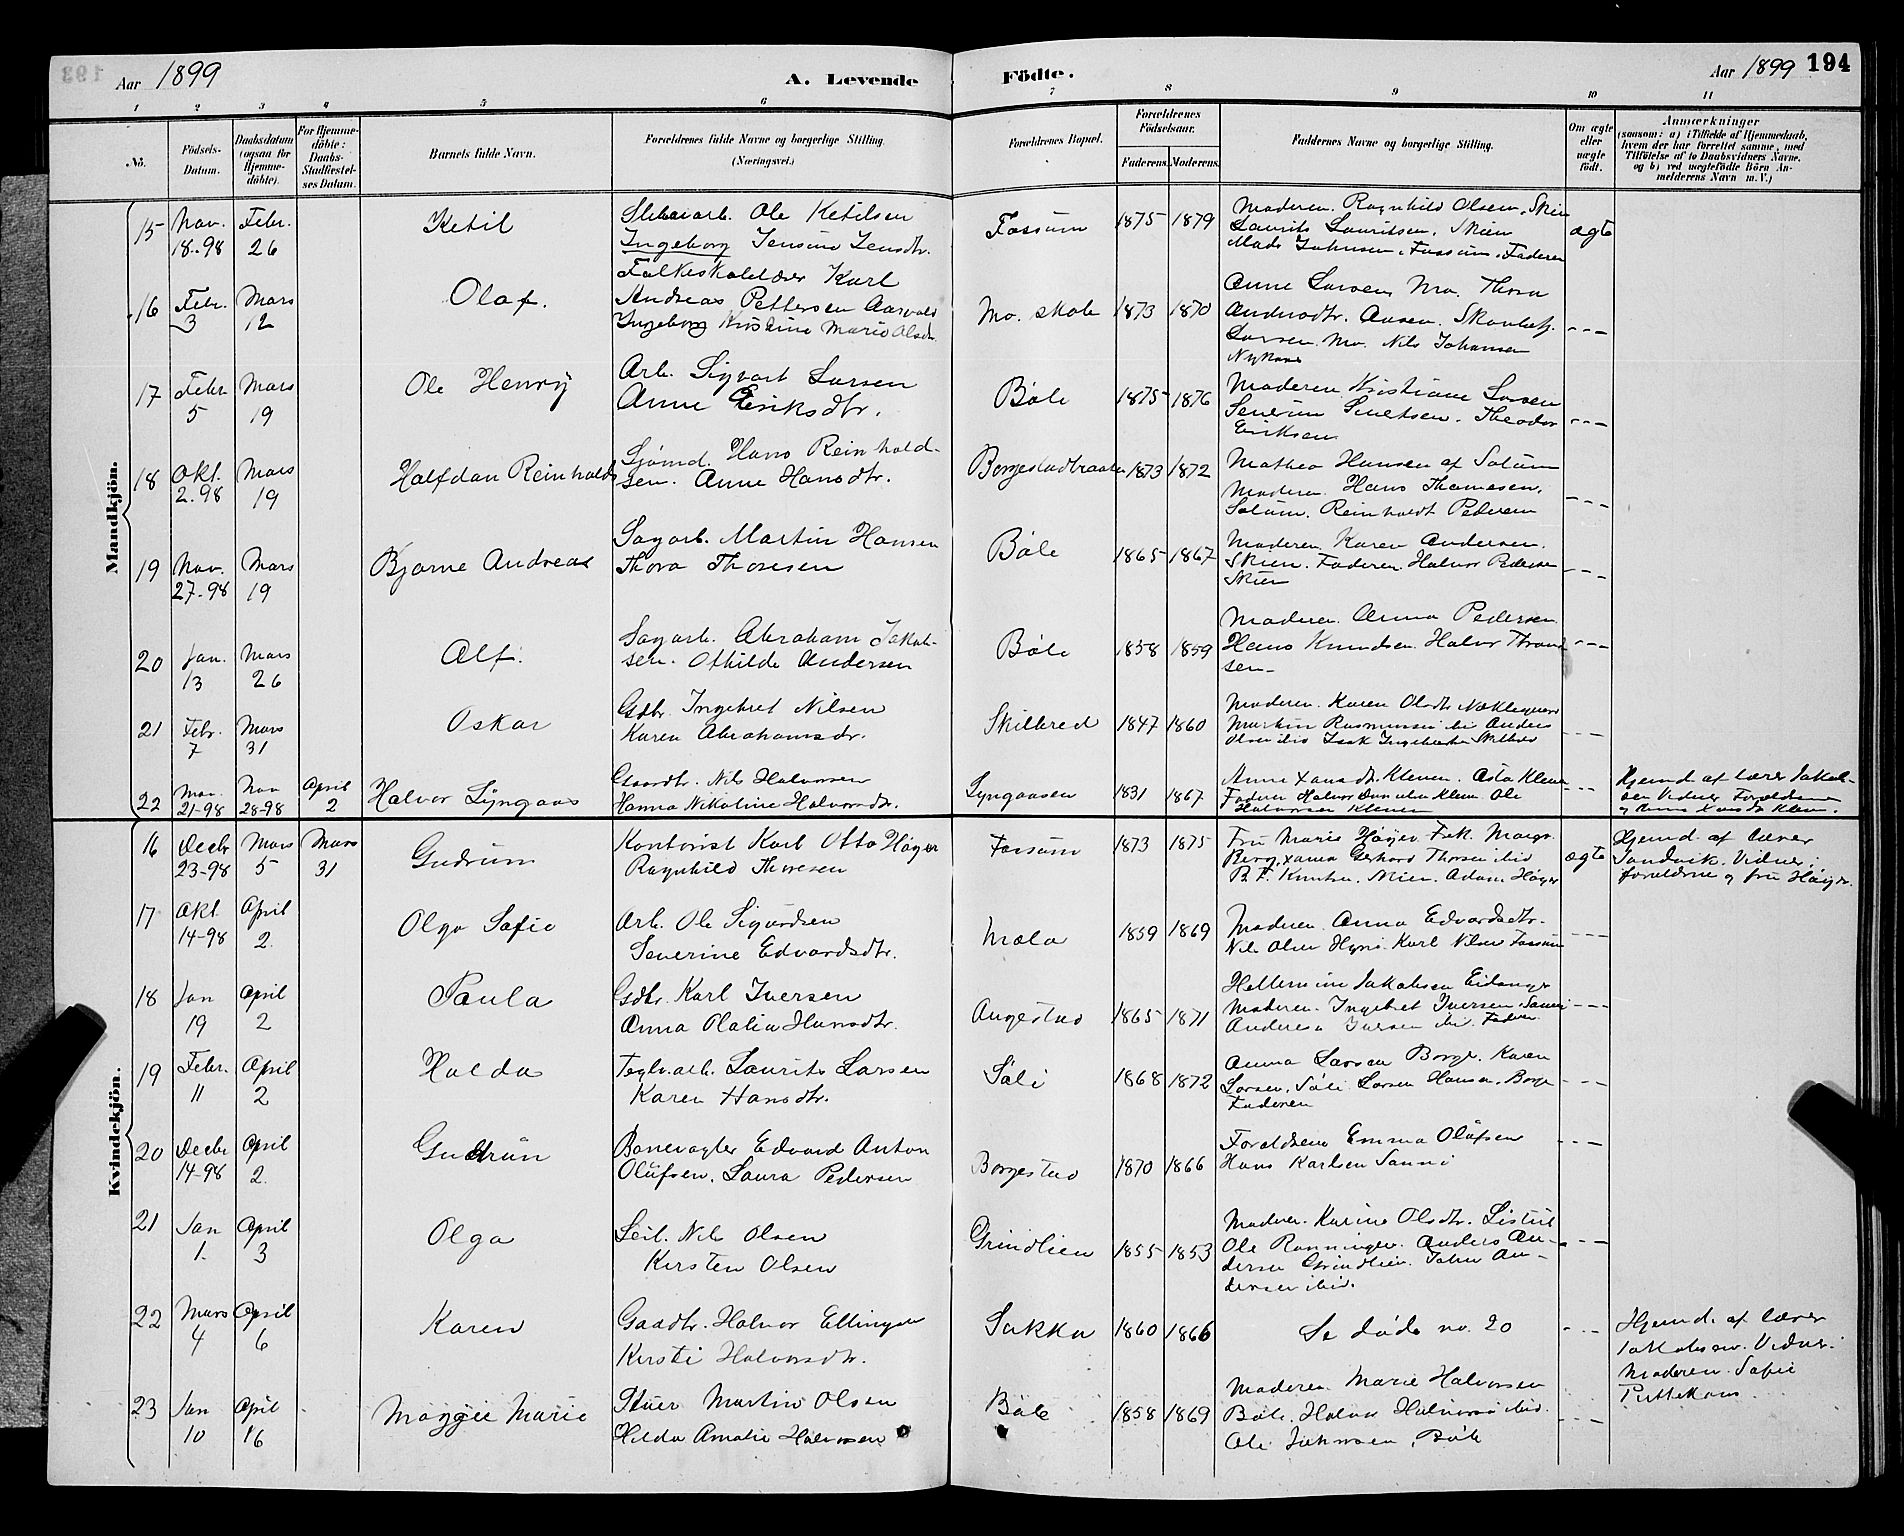 Aar 1899
A. Levende
Födte.
Aar 1899
194
1 2 3 4 5 6 7 8 9 10 11
No.
Födsels-Datum.
Daabsdatum (ogsaa for Hjemme-döbte).
For Hjemme-döbte: Daabs-Stadfæstel-ses Datum.
Barnets fulde Navn.
Forældrenes fulde Navne og borgerlige Stilling. (Næringsvei.)
Forældrenes Bopæl.
Forældrenes Födselsaar.
Faderens. Moderens.
Faddernes Navne og borgerlige Stilling.
Om ægte eller uægte födt.
Anmærkninger
(saasom: a) i Tilfælde af Hjemmedaab, hvem der har forrettet samme, med Tilföielse af to Daabsvidners Navne, og b) ved uægtefödte Börn An-melderens Navn m. V.)
Mandkjön.
15 Nov. 18-98 Febr. 26 Ketil
Ole Ketilsen
Ingeborg Jensine Jensdtr.
Fossum 1875 1879
Moderen. Ragnhild Olsen, Skien
Laurits Lauritsen, Skien
Mads Johnsen, Fossum, Faderen
ægte
16 Febr. 3 Mars 12 Olaf.
Karl
Andreas Pettersen Aasvold
Ingeborg Kristine Marie Olsdtr.
Mo. skole 1873 1870
Anne Larsen, Mo. Thora
Andersdtr. Aasen.
Larsen. Mo. Nils Johansen
---
17 Febr. 5 Mars 19 Ole Henry
Arb. Sigvart Larsen
Anne Eriksdtr.
Böle 1875 1876
Moderen. Kristiane Larsen
Severin Theodor
Eriksen
---
18 Okt. 2.98 Mars 19 Halfdan Reinholdt
Sjömd. Hans Reinhold-
sen. Anne Hansdtr.
Borgestadbraaten 1873 1872
Mathea Hansen af Solum
Moderen. Hans Thomesen,
Solum. Reinholdt Pedersen
---
19 Nov. 27-98 Mars 19 Bjarne Andreas
Sagarb. Martin Hansen
Thora Thoresen
Böle 1865 1867
Moderen. Karen Andersen.
Skien. Faderen. Halvor Pedersen
Skien
---
20 Jan. 13 Mars 26 Alf.
Sagarb. Abraham Jakob-
sen. Othilde Andersen
Böle 1858 1859
Moderen. Anna Pedersen
Hans Knudsen. Halvor
sen
---
21 Febr. 7 Mars 31 Oskar
Gdbr. Ingebret Nilsen
Karen Abrahamsdr.
Skilbred 1847 1860
Moderen. Karen Olsdtr.
Martin Rasmussen ibi Anders
Olsen ibid Isak Skilbred
---
22 Nov. 21-98 Nov 28-98 April 2 Halvor Lyngaas
Gaardbr. Nils Halvorsen
Hanna Nikoline Halvorsdtr.
Lyngaasen 1831 1867
Anne Kleven. Asta Kleven
Faderen Halvor Kleven Ole
Halvorsen Kleven
---
Hjemd af lærer Jakob-
sen Vidner Forældrene
og Anne Kleven.
Kvindekjön.
16 Decbr 23-98 Mars 5 Mars 31 Gudrun
Kontorist Karl Otto Höyer
Ragnhild Thoresen
Fossum 1873 1875
Fru Marie Höyer Frk. Margr.
Berg, Gerhard Thoresen ibid
Knutsen. Skien. Adam Höyer
ægte
Hjemd. af lærer
Sandvik. Vidner:
forældrene og fru Höyer.
17 Okt. 14-98 April 2. Olga Sofie
Arb. Ole Sigurdsen
Severine Edvardsdtr.
Mæla 1859 1869
Moderen. Anna Edvardsdtr.
Nils Olsen Karl Nilsen Fossum
---
18 Jan 19 April 2 Paula
Gdbr. Karl Iversen
Anna Olalia Hansdtr.
Augestad 1865 1871
Jakobsen Eidanger
Moderen. Ingebret Iversen,
Andreas Iversen ibi. Faderen
---
19 Febr. 11 April 2 Halda
Teglv.arb. Laurits Larsen
Karen Hansdtr.
Söli 1868 1872
Anna Larsen Borge. Karen
Larsen. Söli Larsen Hansen, Borge
Faderen
---
20 Decbr 14-98 April 2. Gudrun
Banevogter Edvard Anton
Olufsen. Laura Pedersen
Borgestad 1870 1866
Forældrene Emma Olufsen
Hans Karlsen Sanni
---
21 Jan 1. April 3 Olga
Seil. Nils Olsen
Kirsten Olsen
Grindlien 1855 1853
Moderen. Karine Olsdtr.
Ole Rønningen. Anders An-
dersen Grindlien. John An-
dersen ibid.
---
22 Mars 4 April 6 Karen
Gaardbr. Halvor Ellingsen
Kirsti Halvorsdtr.
Sakka 1860 1866
Se döde no. 20
---
Hjemd. af lærer
Jakobsen. Vidner.
Moderen. Sofie
23 Jan 10 April 16 Maggie Marie
Stuer Martin Olsen
Hilda Amalie Halvorsen
Böle 1858 1869
Moderen. Marie Halvorsen
Böle. Halvor Halvorsen ibid.
Ole Johnsen, Böle
---